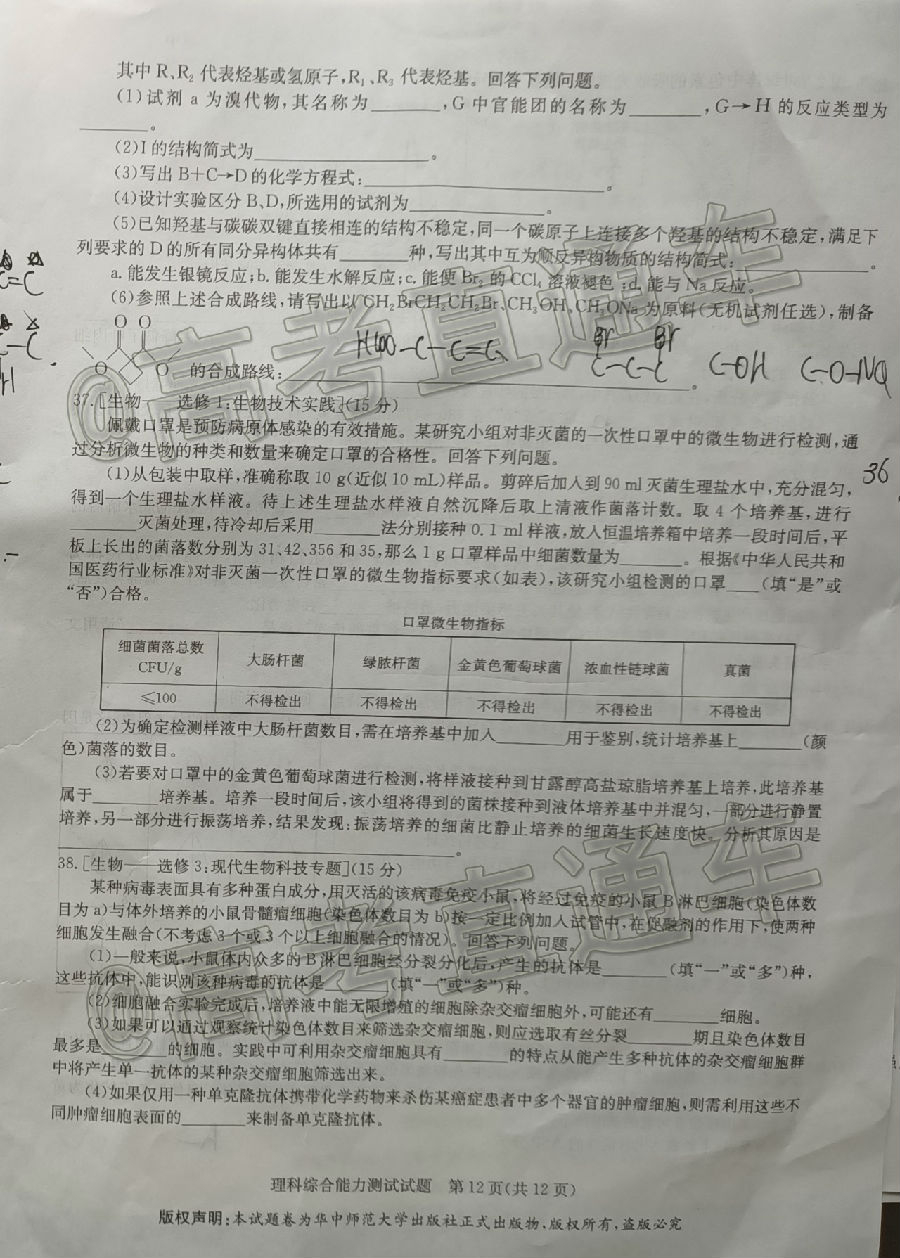 其中 R、R₂ 代表烃基或氢原子,R₁、R₃ 代表烃基。回答下列问题。
(1)试剂 a 为溴代物,其名称为________,G 中官能团的名称为________,G→H 的反应类型为
________。
(2)I的结构简式为________________。
(3)写出 B+C→D的化学方程式:________________________。
(4)设计实验区分 B、D,所选用的试剂为________________。
(5)已知羟基与碳碳双键直接相连的结构不稳定,同一个碳原子上连接多个羟基的结构不稳定,满足下
列要求的 D 的所有同分异构体共有________种,写出其中互为顺反异构物质的结构简式:________________。
a. 能发生银镜反应;b. 能发生水解反应;c. 能使 Br₂ 的 CCl₄ 溶液褪色;d. 能与 Na 反应。
(6)参照上述合成路线,请写出以 CH₂BrCH₂CH₂Br、CH₃OH、CH₃ONa 为原料(无机试剂任选),制备
O O
O O 的合成路线:________________________________。
HCOO-C-C=C
Br Br
C-C-C
C-OH
C-O-Na
37. [生物——选修 1:生物技术实践](15 分)
佩戴口罩是预防病原体感染的有效措施。某研究小组对非灭菌的一次性口罩中的微生物进行检测,通
过分析微生物的种类和数量来确定口罩的合格性。回答下列问题。
(1)从包装中取样,准确称取 10 g(近似10 mL)样品。剪碎后加入到 90 ml 灭菌生理盐水中,充分混匀,
36
得到一个生理盐水样液。待上述生理盐水样液自然沉降后取上清液作菌落计数。取 4 个培养基,进行
________灭菌处理,待冷却后采用________法分别接种 0.1 ml样液,放入恒温培养箱中培养一段时间后,平
板上长出的菌落数分别为 31、42、356 和 35,那么 1 g 口罩样品中细菌数量为________。根据《中华人民共和
国医药行业标准》对非灭菌一次性口罩的微生物指标要求(如表),该研究小组检测的口罩____(填“是”或
“否”)合格。
口罩微生物指标
细菌菌落总数 CFU/g 大肠杆菌 绿脓杆菌 金黄色葡萄球菌 浓血性链球菌 真菌
≤100 不得检出 不得检出 不得检出 不得检出 不得检出
(2)为确定检测样液中大肠杆菌数目,需在培养基中加入________用于鉴别,统计培养基上________(颜
色)菌落的数目。
(3)若要对口罩中的金黄色葡萄球菌进行检测,将样液接种到甘露醇高盐琼脂培养基上培养,此培养基
属于________培养基。培养一段时间后,该小组将得到的菌株接种到液体培养基中并混匀,一部分进行静置
培养,另一部分进行振荡培养,结果发现:振荡培养的细菌比静止培养的细菌生长速度快。分析其原因是
________________________________。
38. [生物——选修 3:现代生物科技专题](15 分)
某种病毒表面具有多种蛋白成分,用灭活的该病毒免疫小鼠,将经过免疫的小鼠 B 淋巴细胞(染色体数
目为 a)与体外培养的小鼠骨髓瘤细胞(染色体数目为 b)按一定比例加入试管中,在促融剂的作用下,使两种
细胞发生融合(不考虑 3 个或 3 个以上细胞融合的情况)。回答下列问题。
(1)一般来说,小鼠体内众多的 B 淋巴细胞经分裂分化后,产生的抗体是________(填“一”或“多”)种,
这些抗体中,能识别该种病毒的抗体是________(填“一”或“多”)种。
(2)细胞融合实验完成后,培养液中能无限增殖的细胞除杂交瘤细胞外,可能还有________细胞。
(3)如果可以通过观察统计染色体数目来筛选杂交瘤细胞,则应选取有丝分裂________期且染色体数目
最多是________的细胞。实践中可利用杂交瘤细胞具有________的特点从能产生多种抗体的杂交瘤细胞群
中将产生单一抗体的某种杂交瘤细胞筛选出来。
(4)如果仅用一种单克隆抗体携带化学药物来杀伤某癌症患者中多个器官的肿瘤细胞,则需利用这些不
同肿瘤细胞表面的________来制备单克隆抗体。
理科综合能力测试试题 第 12 页(共 12 页)
版权声明:本试题卷为华中师范大学出版社正式出版物,版权所有,盗版必究
@高考直通车
@高考直通车